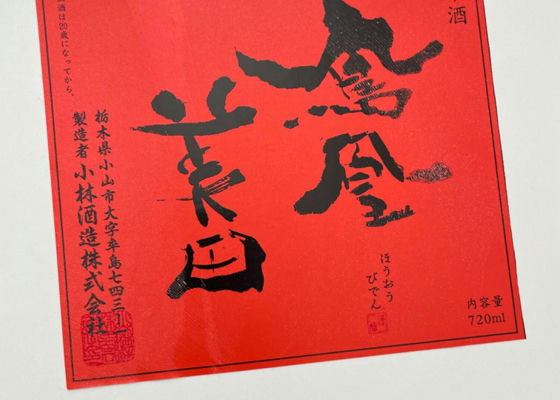 酒
鳳凰
美田
ほうおう
びでん
内容量
720ml
酒は20歳になってから。
栃木県小山市大字卒島七四三-一
製造者 小林酒造株式会社